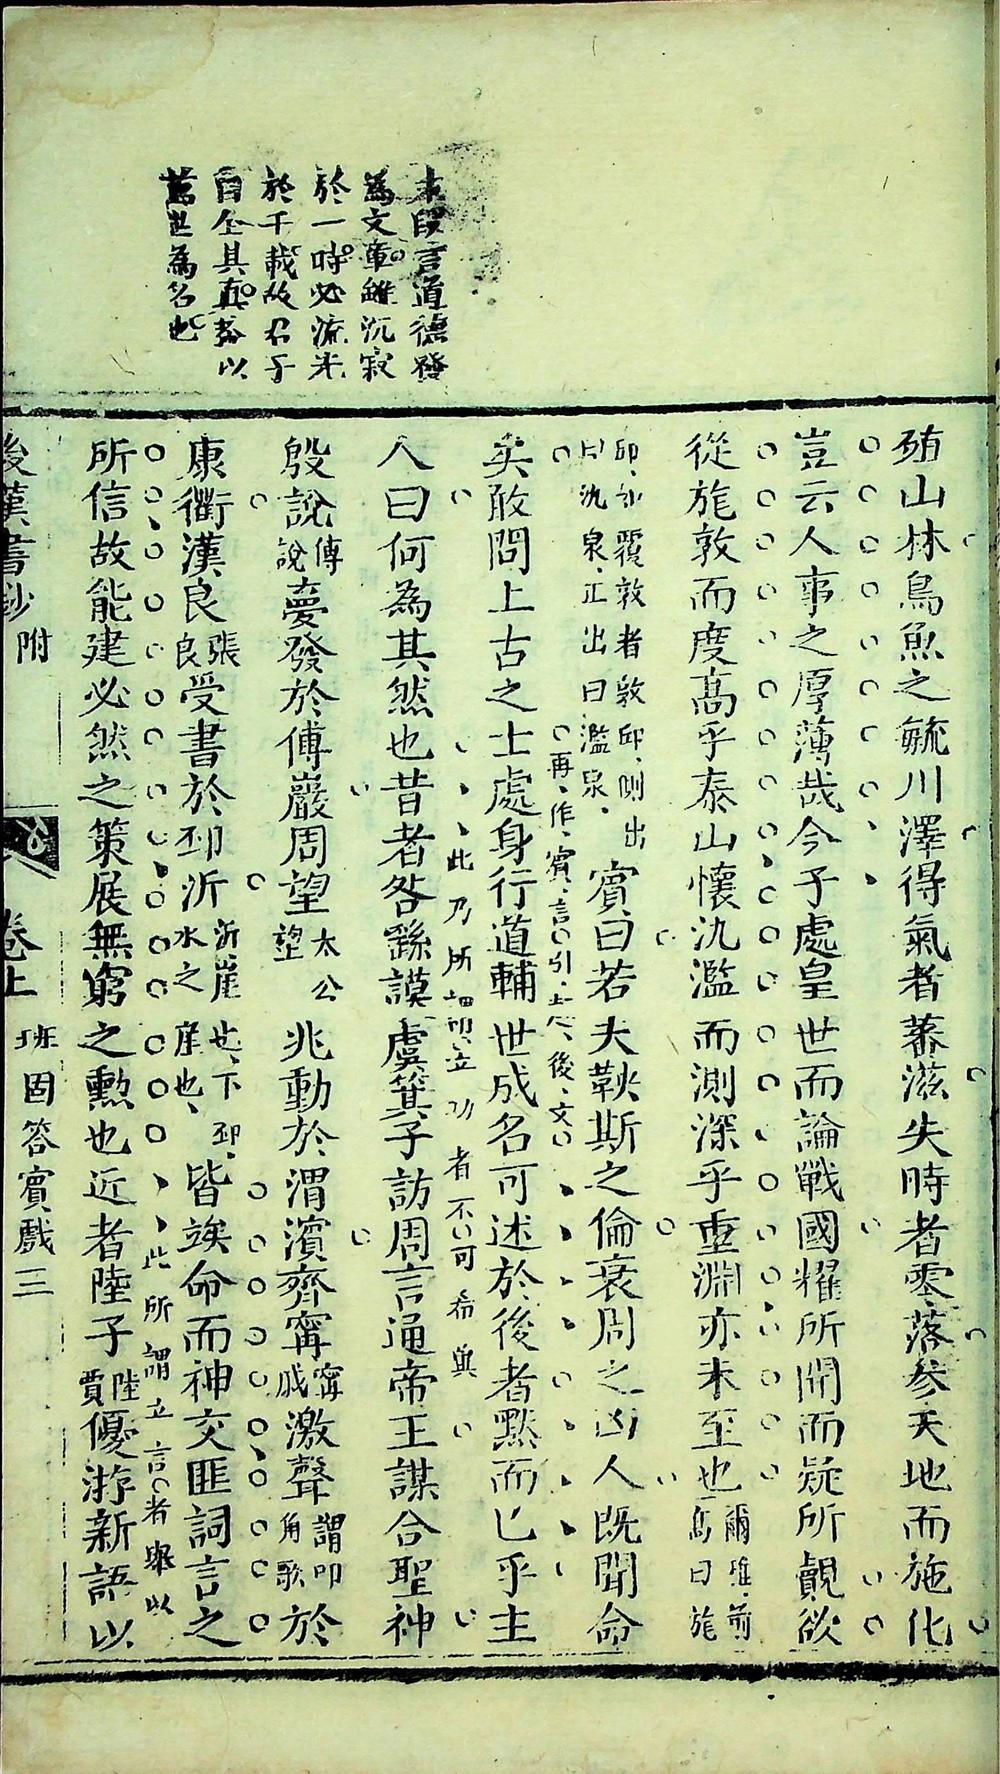 末段言道德發
為文章雖沉寂
於一時必流光
於千載故君子
自全其真務以
萬世為名也
殖山林鳥魚之毓川澤得氣者蕃滋失時者零落參天地而施化
豈云人事之厚薄哉今子處皇世而論戰國耀所聞而疑所覿欲
從旄敦而度高乎泰山懷氿濫而測深乎重淵亦未至也爾雅前高曰旄
邱如覆敦者敦邱側出曰氿泉正出曰濫泉賓曰若夫鞅斯之倫衰周之凶人既聞命
再作賓言引起後文
矣敢問上古之士處身行道輔世成名可述於後者黙而已乎主
此乃所立功者不可希與
人曰何為其然也昔者咎繇謨虞箕子訪周言通帝王謀合聖神
殷說傅說夢發於傅巖周望太公望兆動於渭濱齊甯甯戚激聲謂叩角歌於
康衢漢良張良受書於邳沂沂崖也下邳水之崖也皆竢命而神交匪詞言之
此所謂立言者舉以
所信故能建必然之策展無窮之勳也近者陸子陸賈優游新語以
後漢書鈔附 卷上 班固答賓戲 三